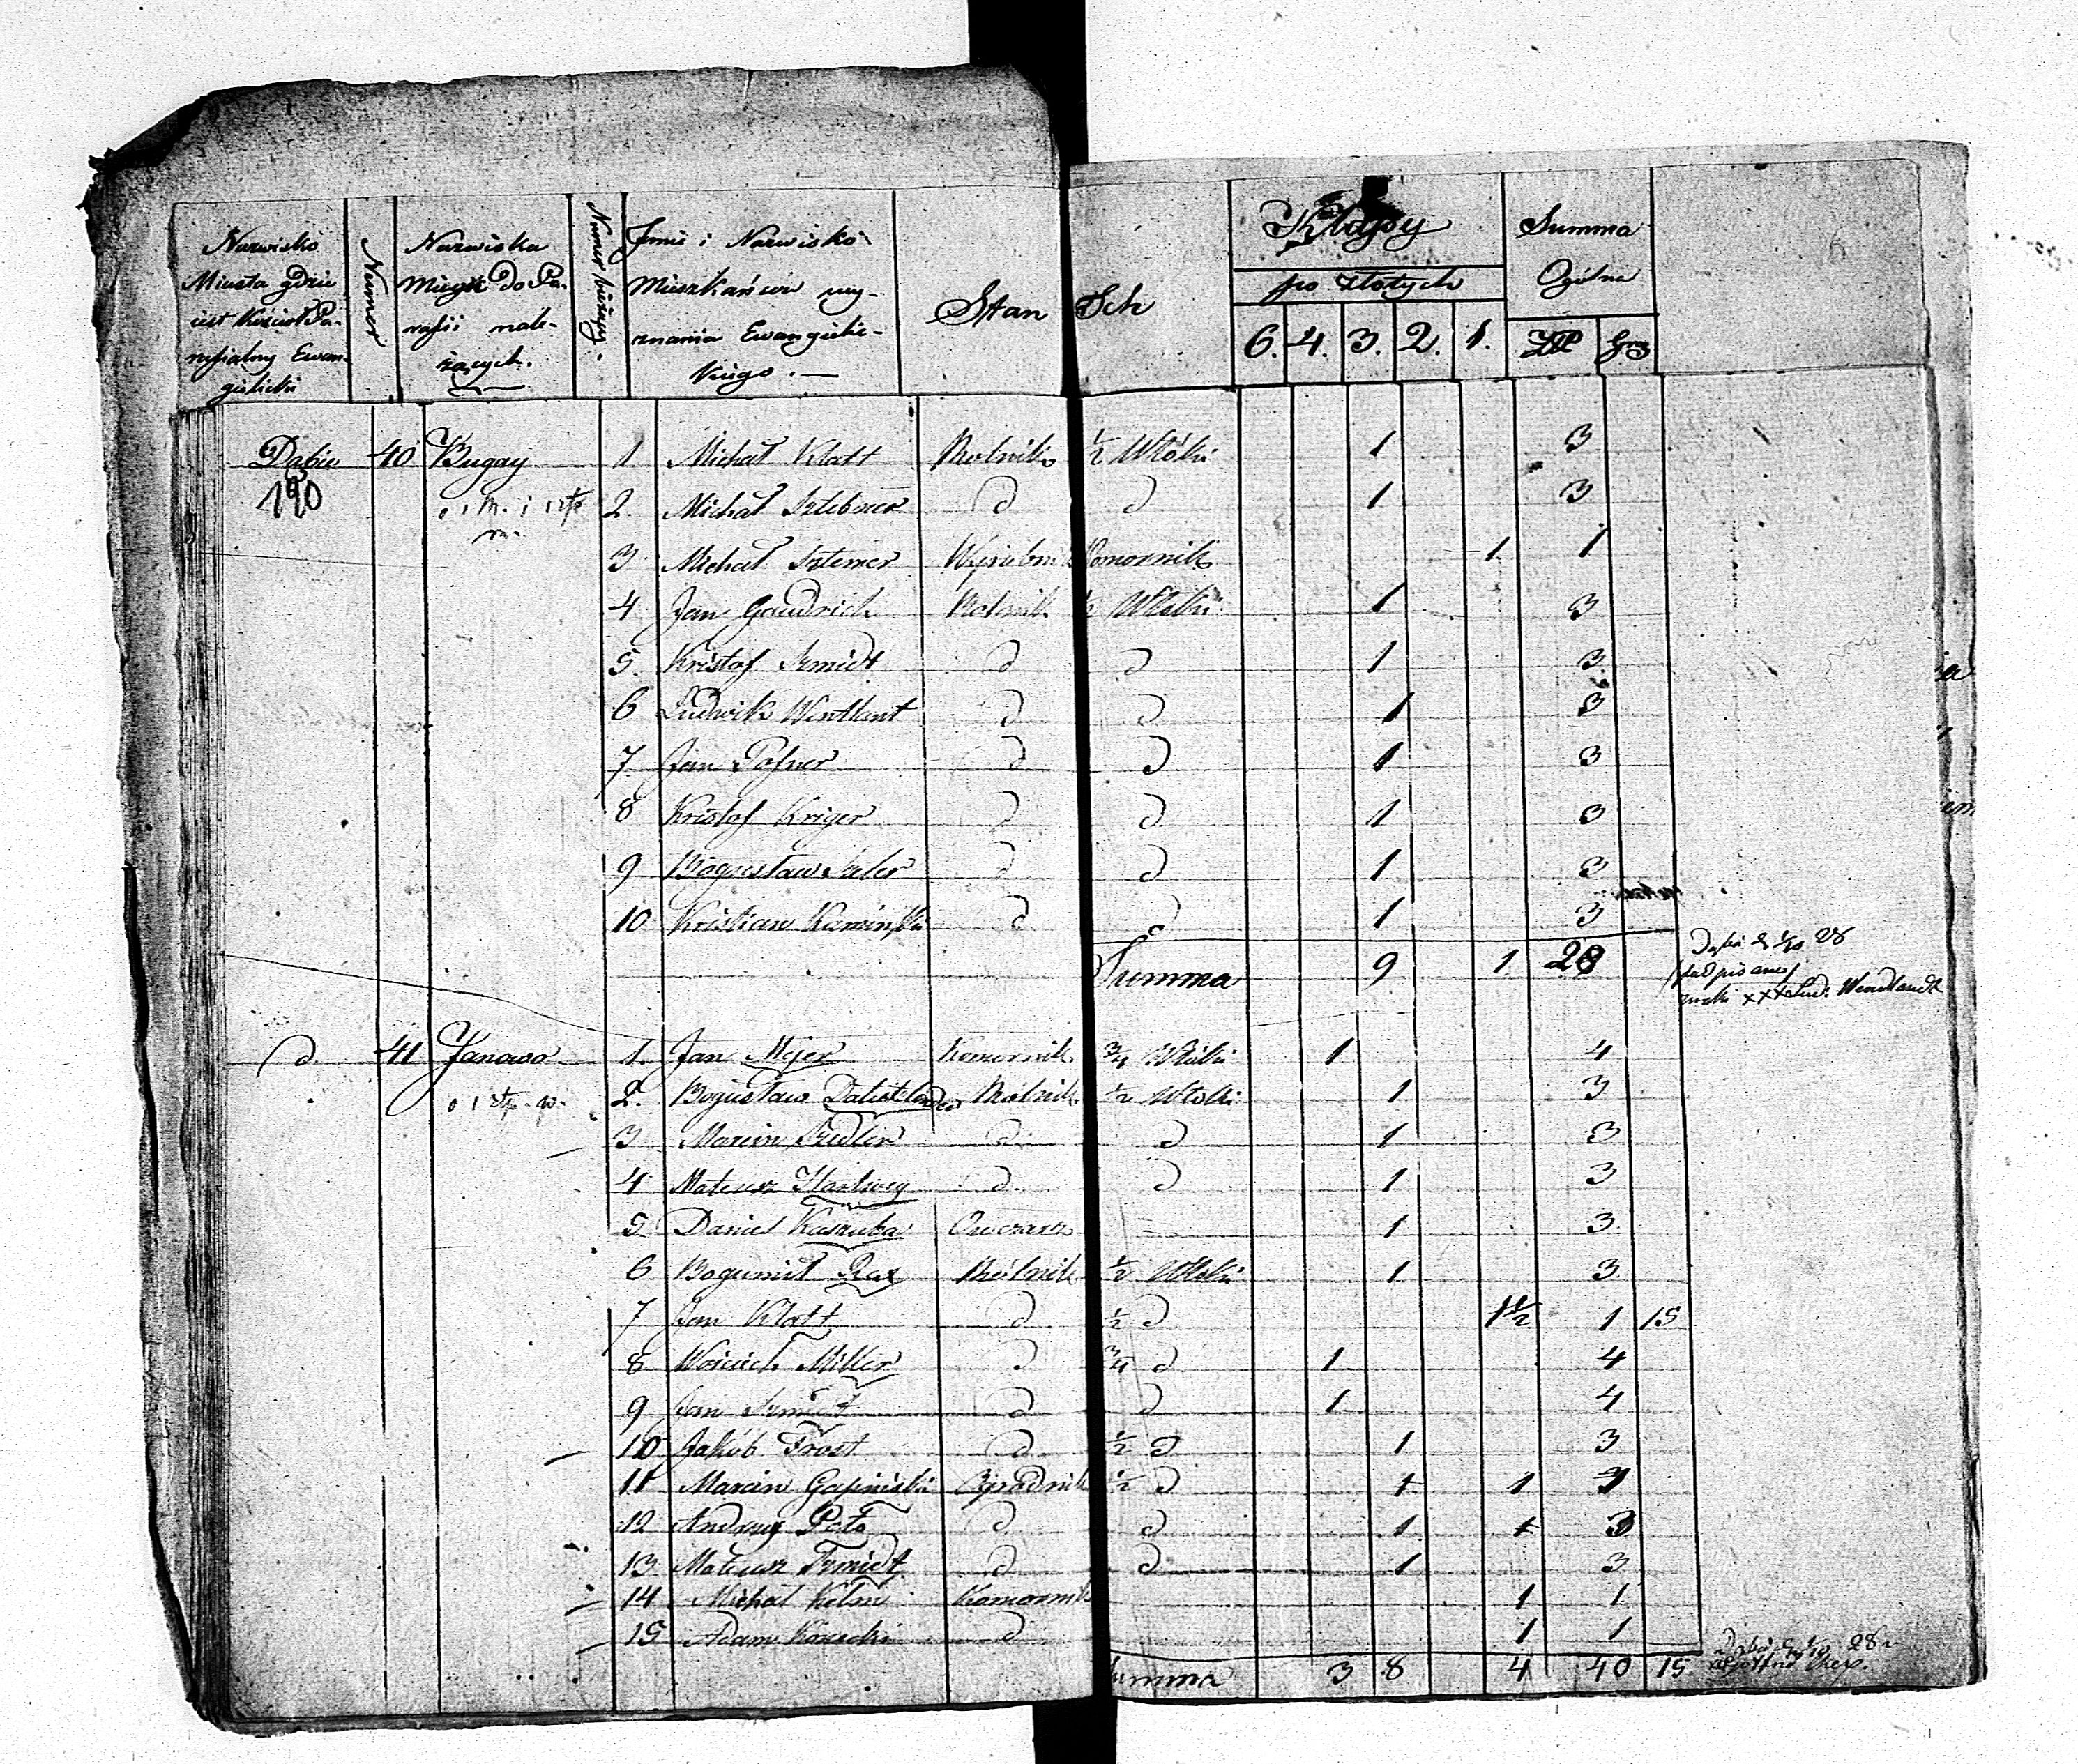 Nazwisko Miasta gdzie iest Kościoł Parafialny Ewangielicki
Numer
Nazwiska Mieysc do Parafii należących.
Numer bieżący.
Jmie i Nazwisko Mieszkańców wyznania Ewangielickiego.
Stan Ich
Klassy
po złotych
6. 4. 3. 2. 1.
Summa Ogólna
Złp Grs
Dąbie 40 Bugay 1 Michał Klatt Rolnik ½ Włóki 1 3
190 2. Michał Szlebner d d 1 3
3 Michał Szterner Wyrobnik Komornik 1 1
4 Jan Gaudrich Rolnik ½ Włoki 1 3
5. Kristof Szmidt d d 1 3
6 Ludwik Wentlant d d 1 3
7. Jan Pofner d d 1 3
8 Kristof Kriger d d 1 3
9 Bogusław Szeler d d 1 3
10 Kristian Kamiński d d 1 3
Summa 9 1 28
Dąbie d 1/10 28
podpisane
znaki xxx Lud. Wendlandt
d. 41 Janowo 1. Jan Mejer Komornik ¾ Włóki 1 4
2. Bogusław Rolnik ½ Włoki 1 3
3 Marcin Szedler d d 1 3
4 Mateusz Hartweg d d 1 3
5 Daniel Kaszuba Owczarz 1 3
6 Bogumił Rex Rolnik ½ Włoki 1 3
7 Jan Klatt d ½ d 1½ 1 15
8 Woiciech Miller d ¾ d 1 4
9 Jan Szmidt d d 1 4
10 Jakób Frost d ½ d 1 3
11 Marcin Gapiński Ogrodnik ½ d 1 1
12 Andrzey Peta d d 1 1 3
13 Mateusz Szmidt d d 1 3
14 Michał Kelm Komornik 1 1
15 Adam Kosecki d 1 1
Summa 3 8 4 40 15